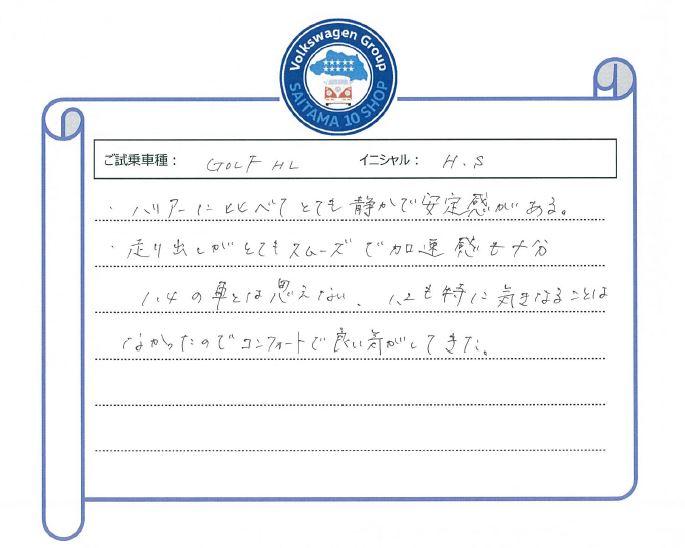 Volkswagen Group
SAITAMA 10 SHOP
ご試乗車種： GOLF HL イニシャル： H.S
・ハリアーに比べてとても静かで安定感がある。
・走り出しがとてもスムーズで加速感も十分
1.4の車とは思えない、1.2も特に気になることは
なかったのでコンフォートで良い気がしてきた。